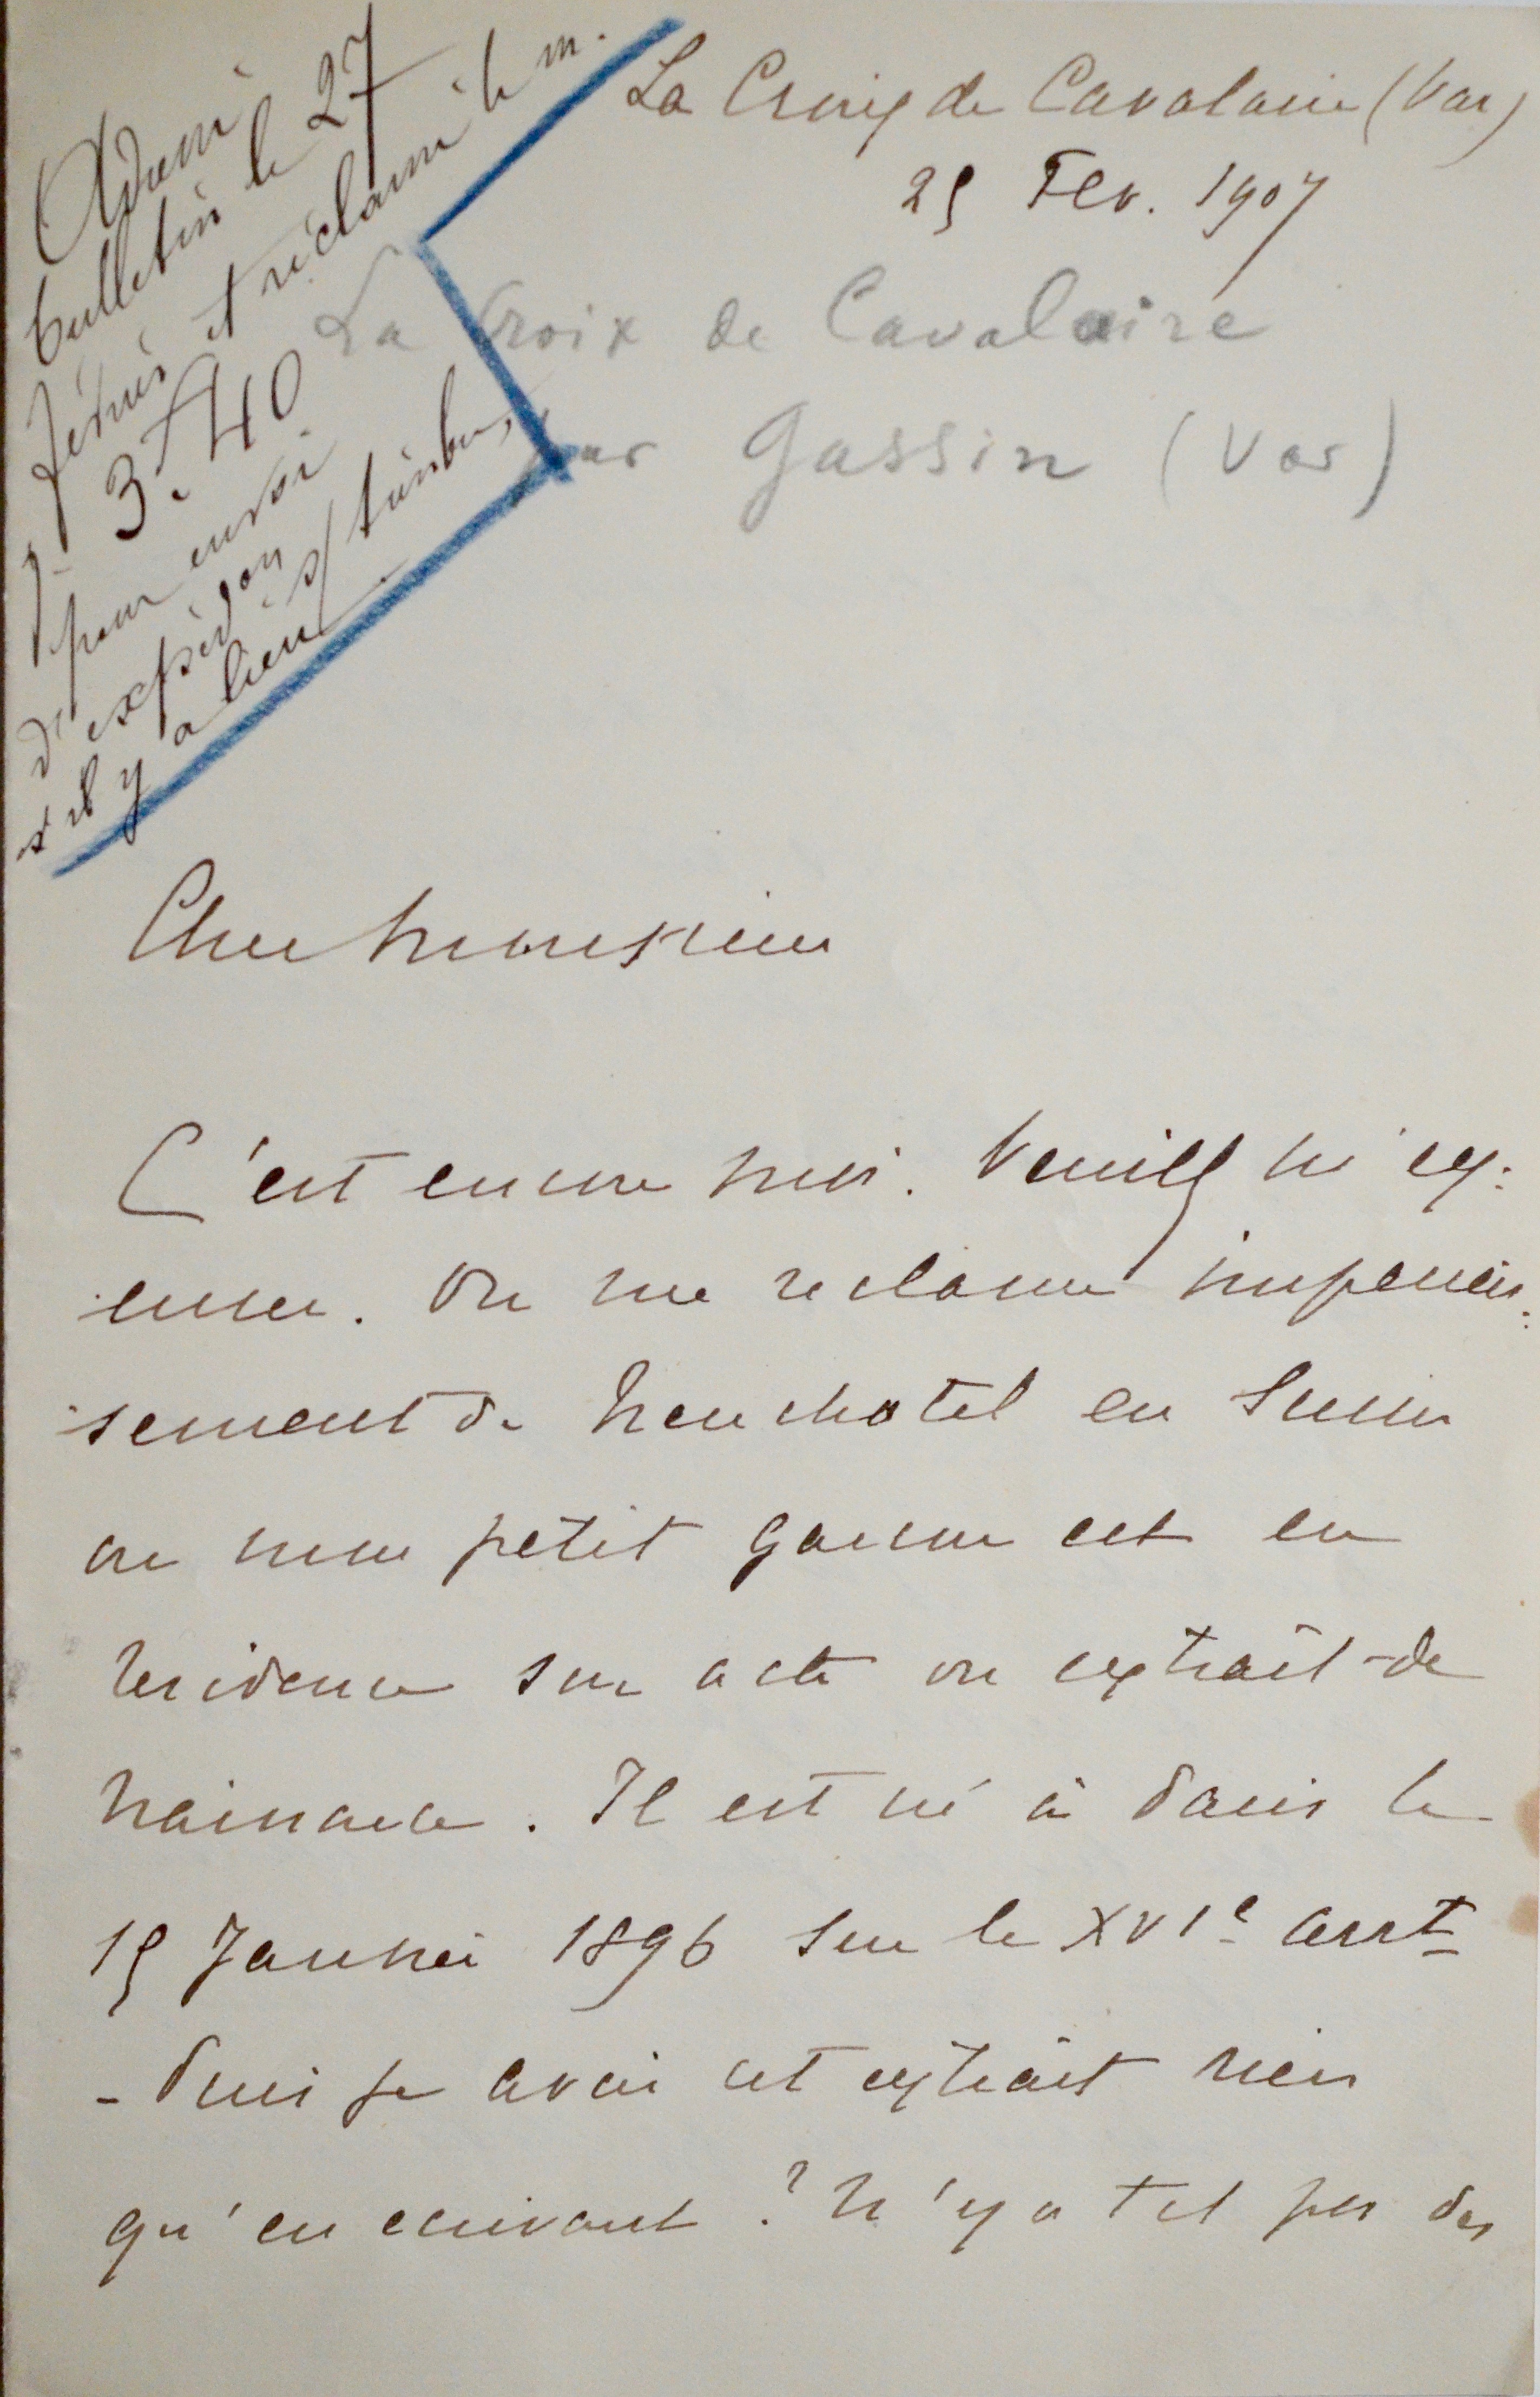 Adressé
bulletin le 27
février et réclamé le m.
j. 3f.40
pour envoi
d'expédon s/ timbre,
s'il y a lieu
La Croix de Cavalaire (Var)
25 Fev. 1907
La Croix de Cavalaire
par Gassin (Var)
Cher Monsieur
C'est encore moi. Veuillez m'ex:
cuser. On me reclame imperieu:
sement de Neuchatel en Suisse
ou mon petit garcon est en
residence son acte ou extrait de
naissance. Il est né à Paris le
15 Janvier 1896 sur le XVIe arrt
- Puis je avoir cet extrait rien
qu'en ecrivant ? N'y a t il pas des